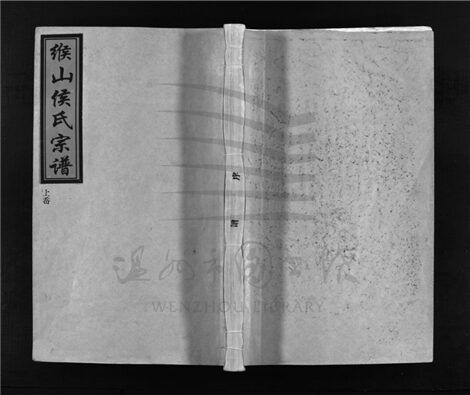 缑山侯氏宗谱
上畨
序
温州市图书馆
WENZHOU LIBRARY